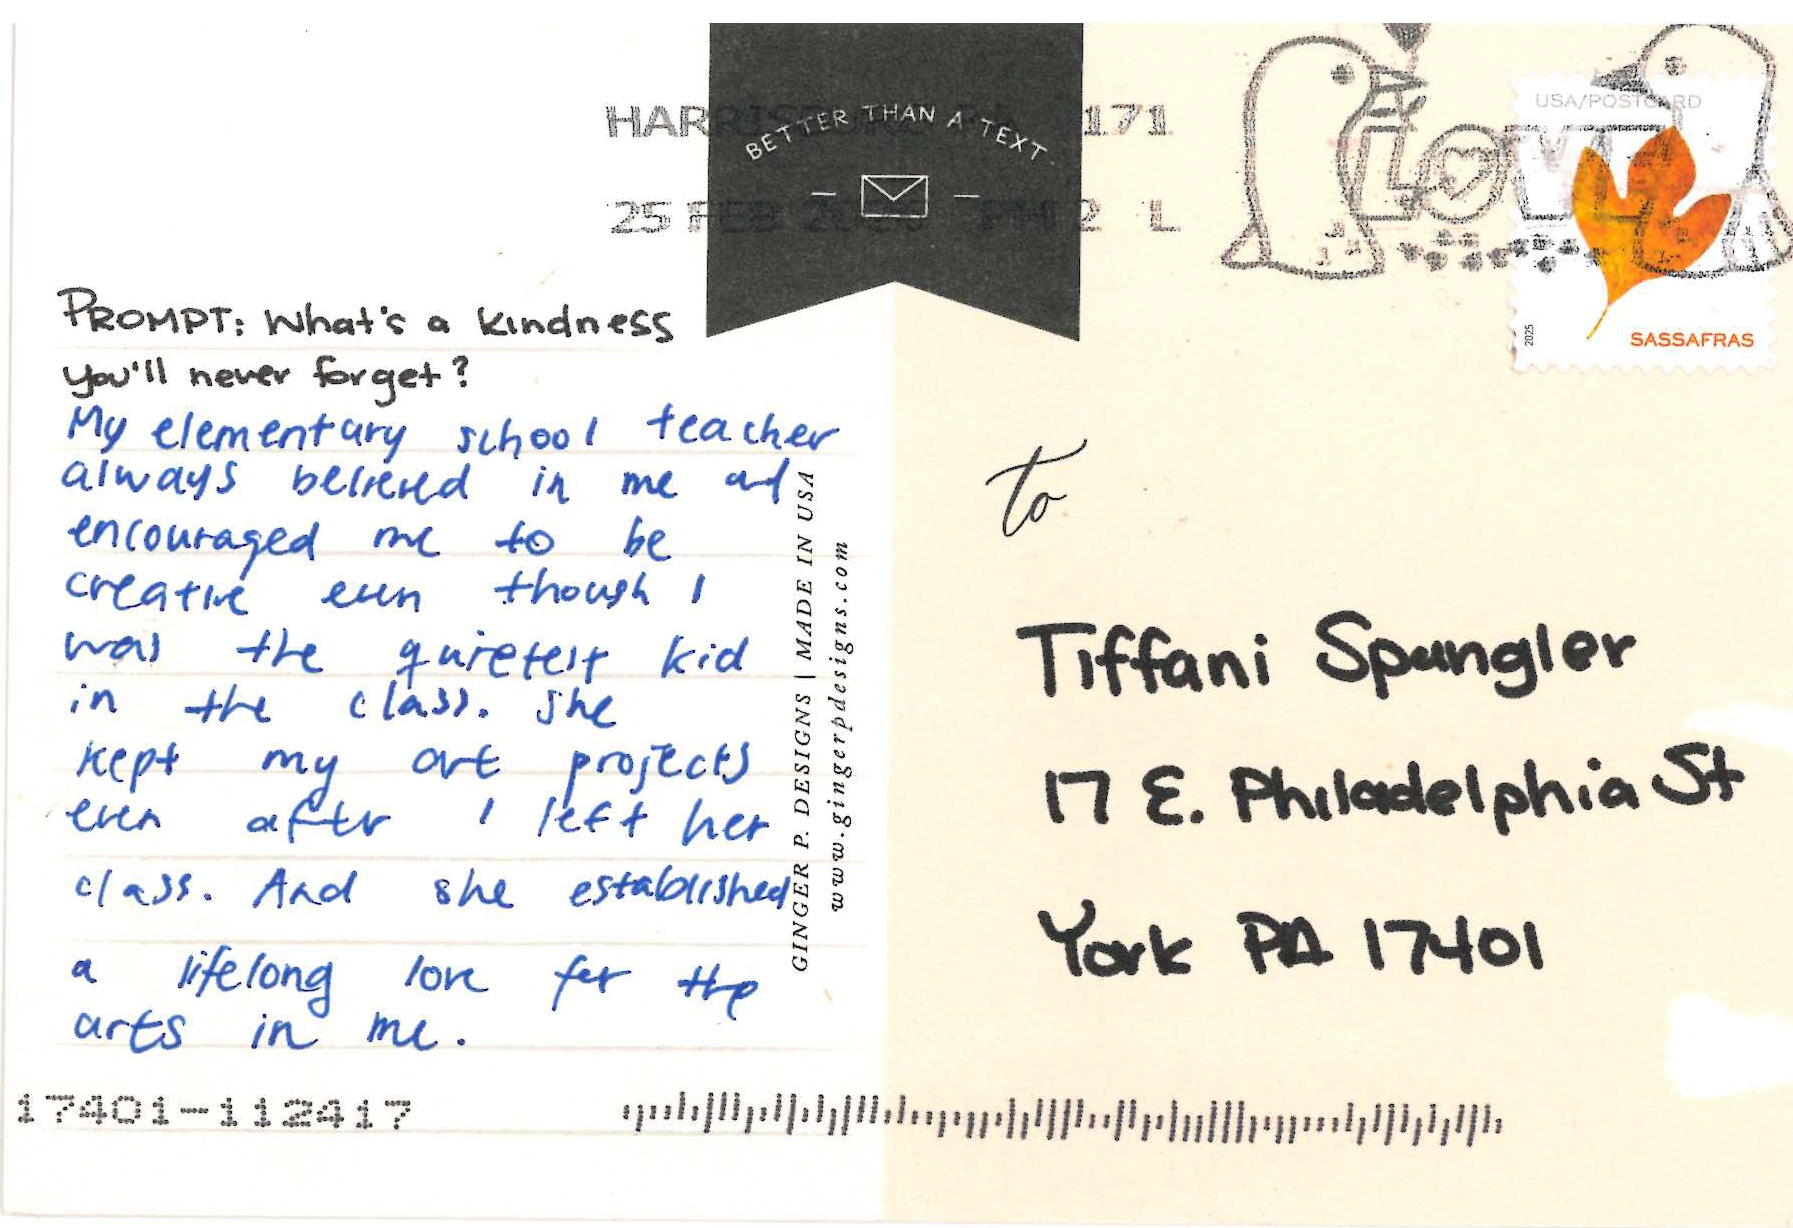 HARRISBURG PA 171
25 FEB PM 2 L
BETTER THAN A TEXT
LOVE
USA/POSTCARD
2025
SASSAFRAS
PROMPT: What's a kindness
you'll never forget?
My elementary school teacher
always believed in me and
encouraged me to be
creative even though I
was the quietest kid
in the class. She
kept my art projects
even after I left her
class. And she established
a lifelong love for the
arts in me.
GINGER P. DESIGNS | MADE IN USA
www.gingerpdesigns.com
to
Tiffani Spangler
17 E. Philadelphia St
York PA 17401
17401-112417